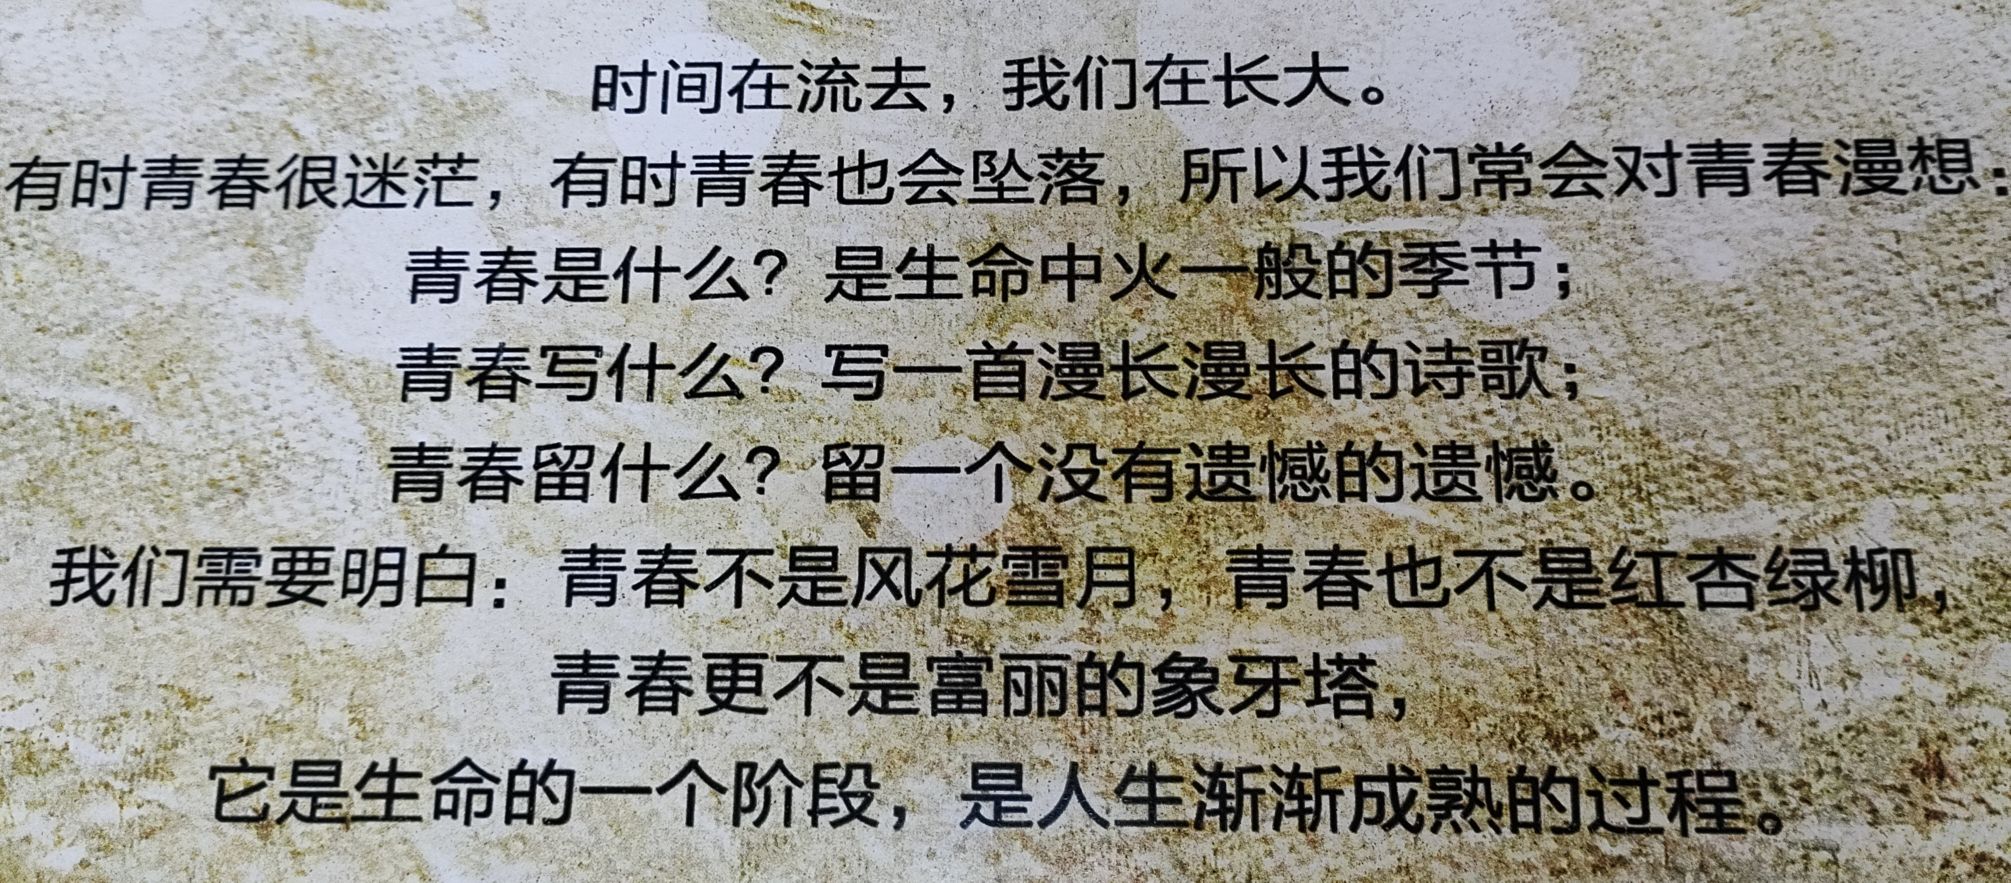 时间在流去，我们在长大。
有时青春很迷茫，有时青春也会坠落，所以我们常会对青春漫想：
青春是什么？是生命中火一般的季节；
青春写什么？写一首漫长漫长的诗歌；
青春留什么？留一个没有遗憾的遗憾。
我们需要明白：青春不是风花雪月，青春也不是红杏绿柳，
青春更不是富丽的象牙塔，
它是生命的一个阶段，是人生渐渐成熟的过程。